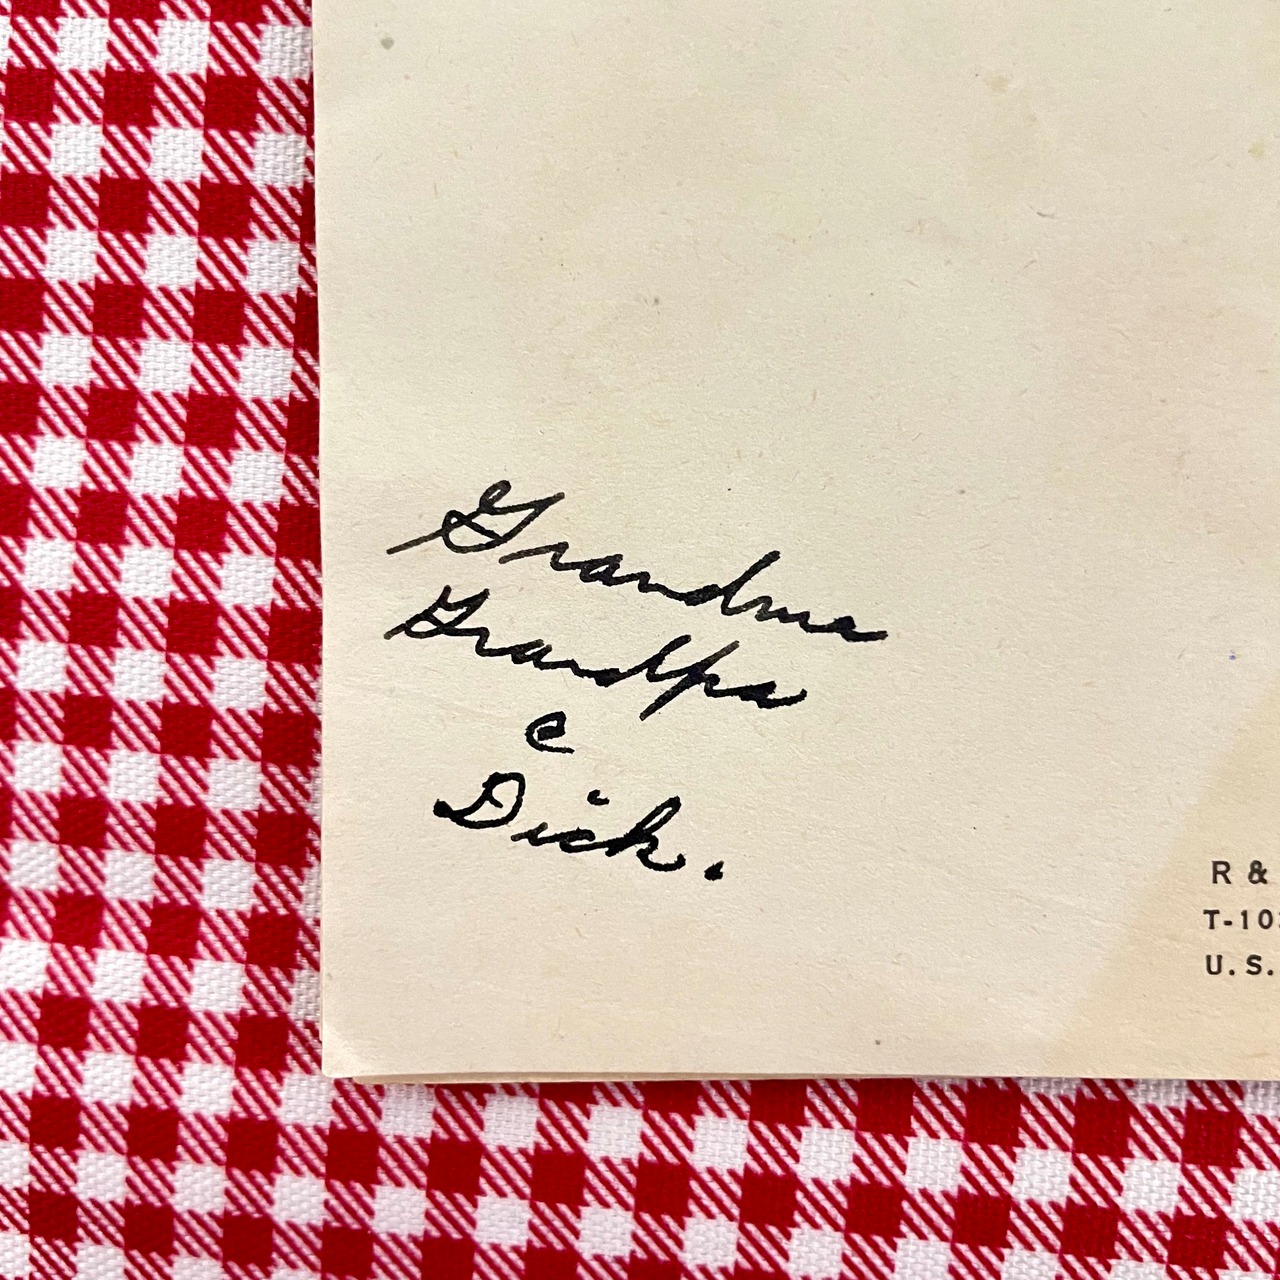 Grandma
Grandpa
e
Dick.
R &
T-10
U. S.